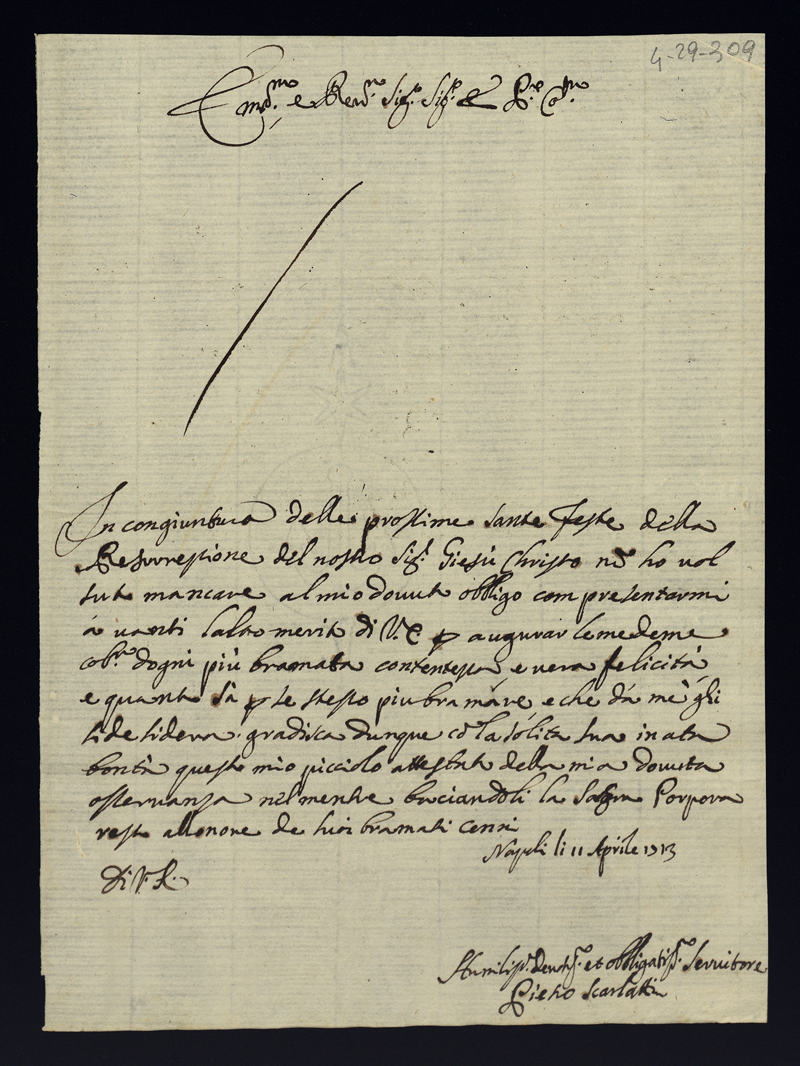 4-29-309
Em.mo e Rev.mo Sig.r Sig.r e P.ne Col.mo
In congiuntura delle prossime sante feste della
Resurressione del nostro Sig.r Giesù Christo nō ho vol
suto mancare al mio douuto obbligo com presentarmi
a uanti lalto merito di V. E. p augurarle medeme
cō ogni più bramata contentessa, e uera felicità
e quanto sà p se stesso più bramare, e che dà mè gli
si desidera. gradisca dunque cō la solita sua in ata
bontà questo mio picciolo attestato della mia douuta
osseruansa nel mentre baciandoli la Sagra Porpora
resto all onore de suoi bramati cenni
Napoli li 11 Aprile 1713
Di V. E.
Humiliss.o Deuotis.o et obbligatis.o Seruitore
Pietro Scarlatti